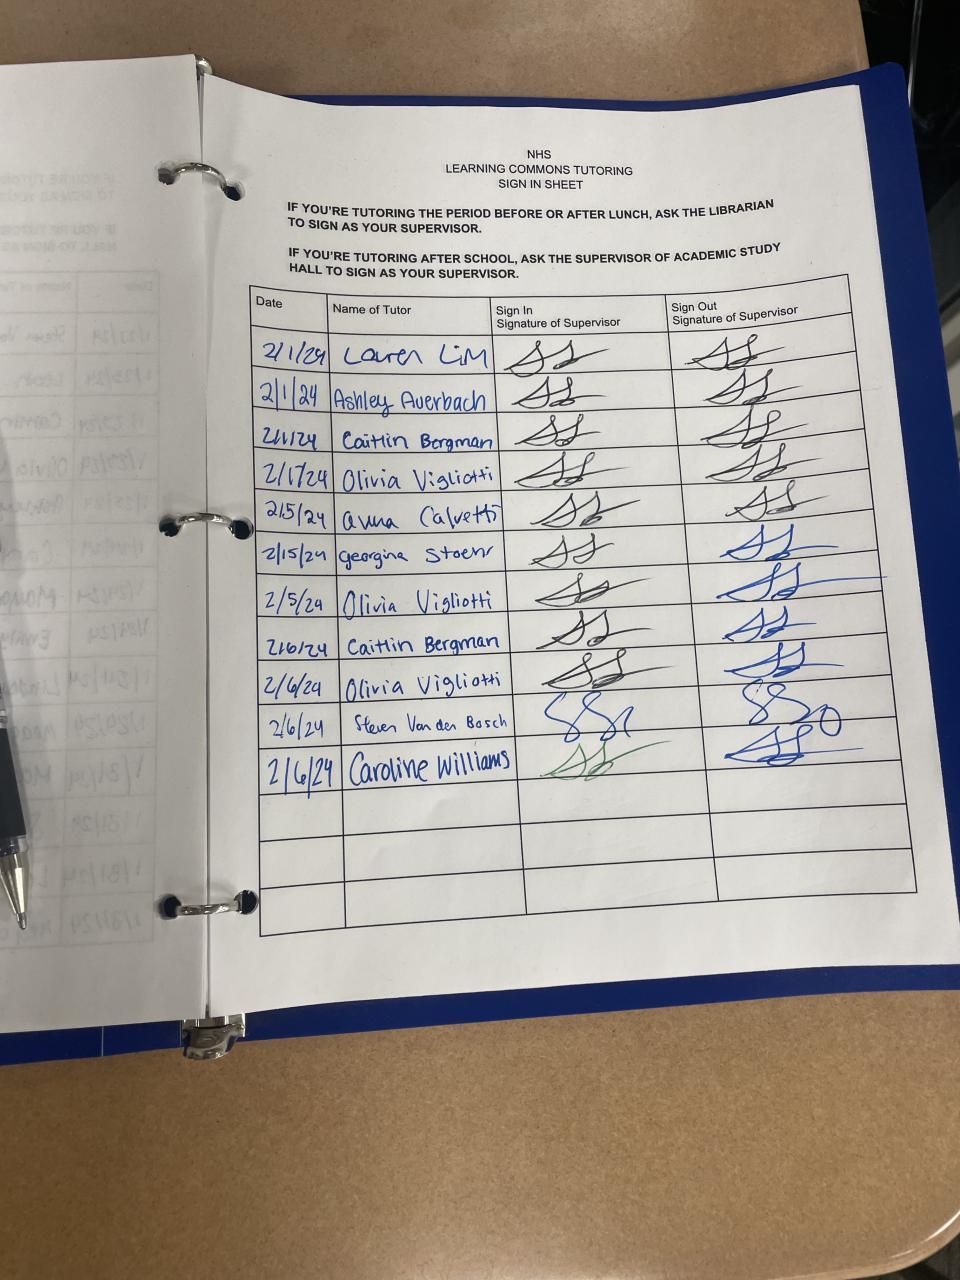 NHS
LEARNING COMMONS TUTORING
SIGN IN SHEET
IF YOU'RE TUTORING THE PERIOD BEFORE OR AFTER LUNCH, ASK THE LIBRARIAN
TO SIGN AS YOUR SUPERVISOR.
IF YOU'RE TUTORING AFTER SCHOOL, ASK THE SUPERVISOR OF ACADEMIC STUDY
HALL TO SIGN AS YOUR SUPERVISOR.
Date Name of Tutor Sign In Signature of Supervisor Sign Out Signature of Supervisor
2/1/24 Lauren Lim
2/1/24 Ashley Auerbach
2/1/24 Caitlin Bergman
2/1/24 Olivia Vigliotti
2/5/24 Anna Calvetti
2/15/24 Georgina Stoehr
2/5/24 Olivia Vigliotti
2/6/24 Caitlin Bergman
2/6/24 Olivia Vigliotti
2/6/24 Steven Van den Bosch
2/6/24 Caroline Williams